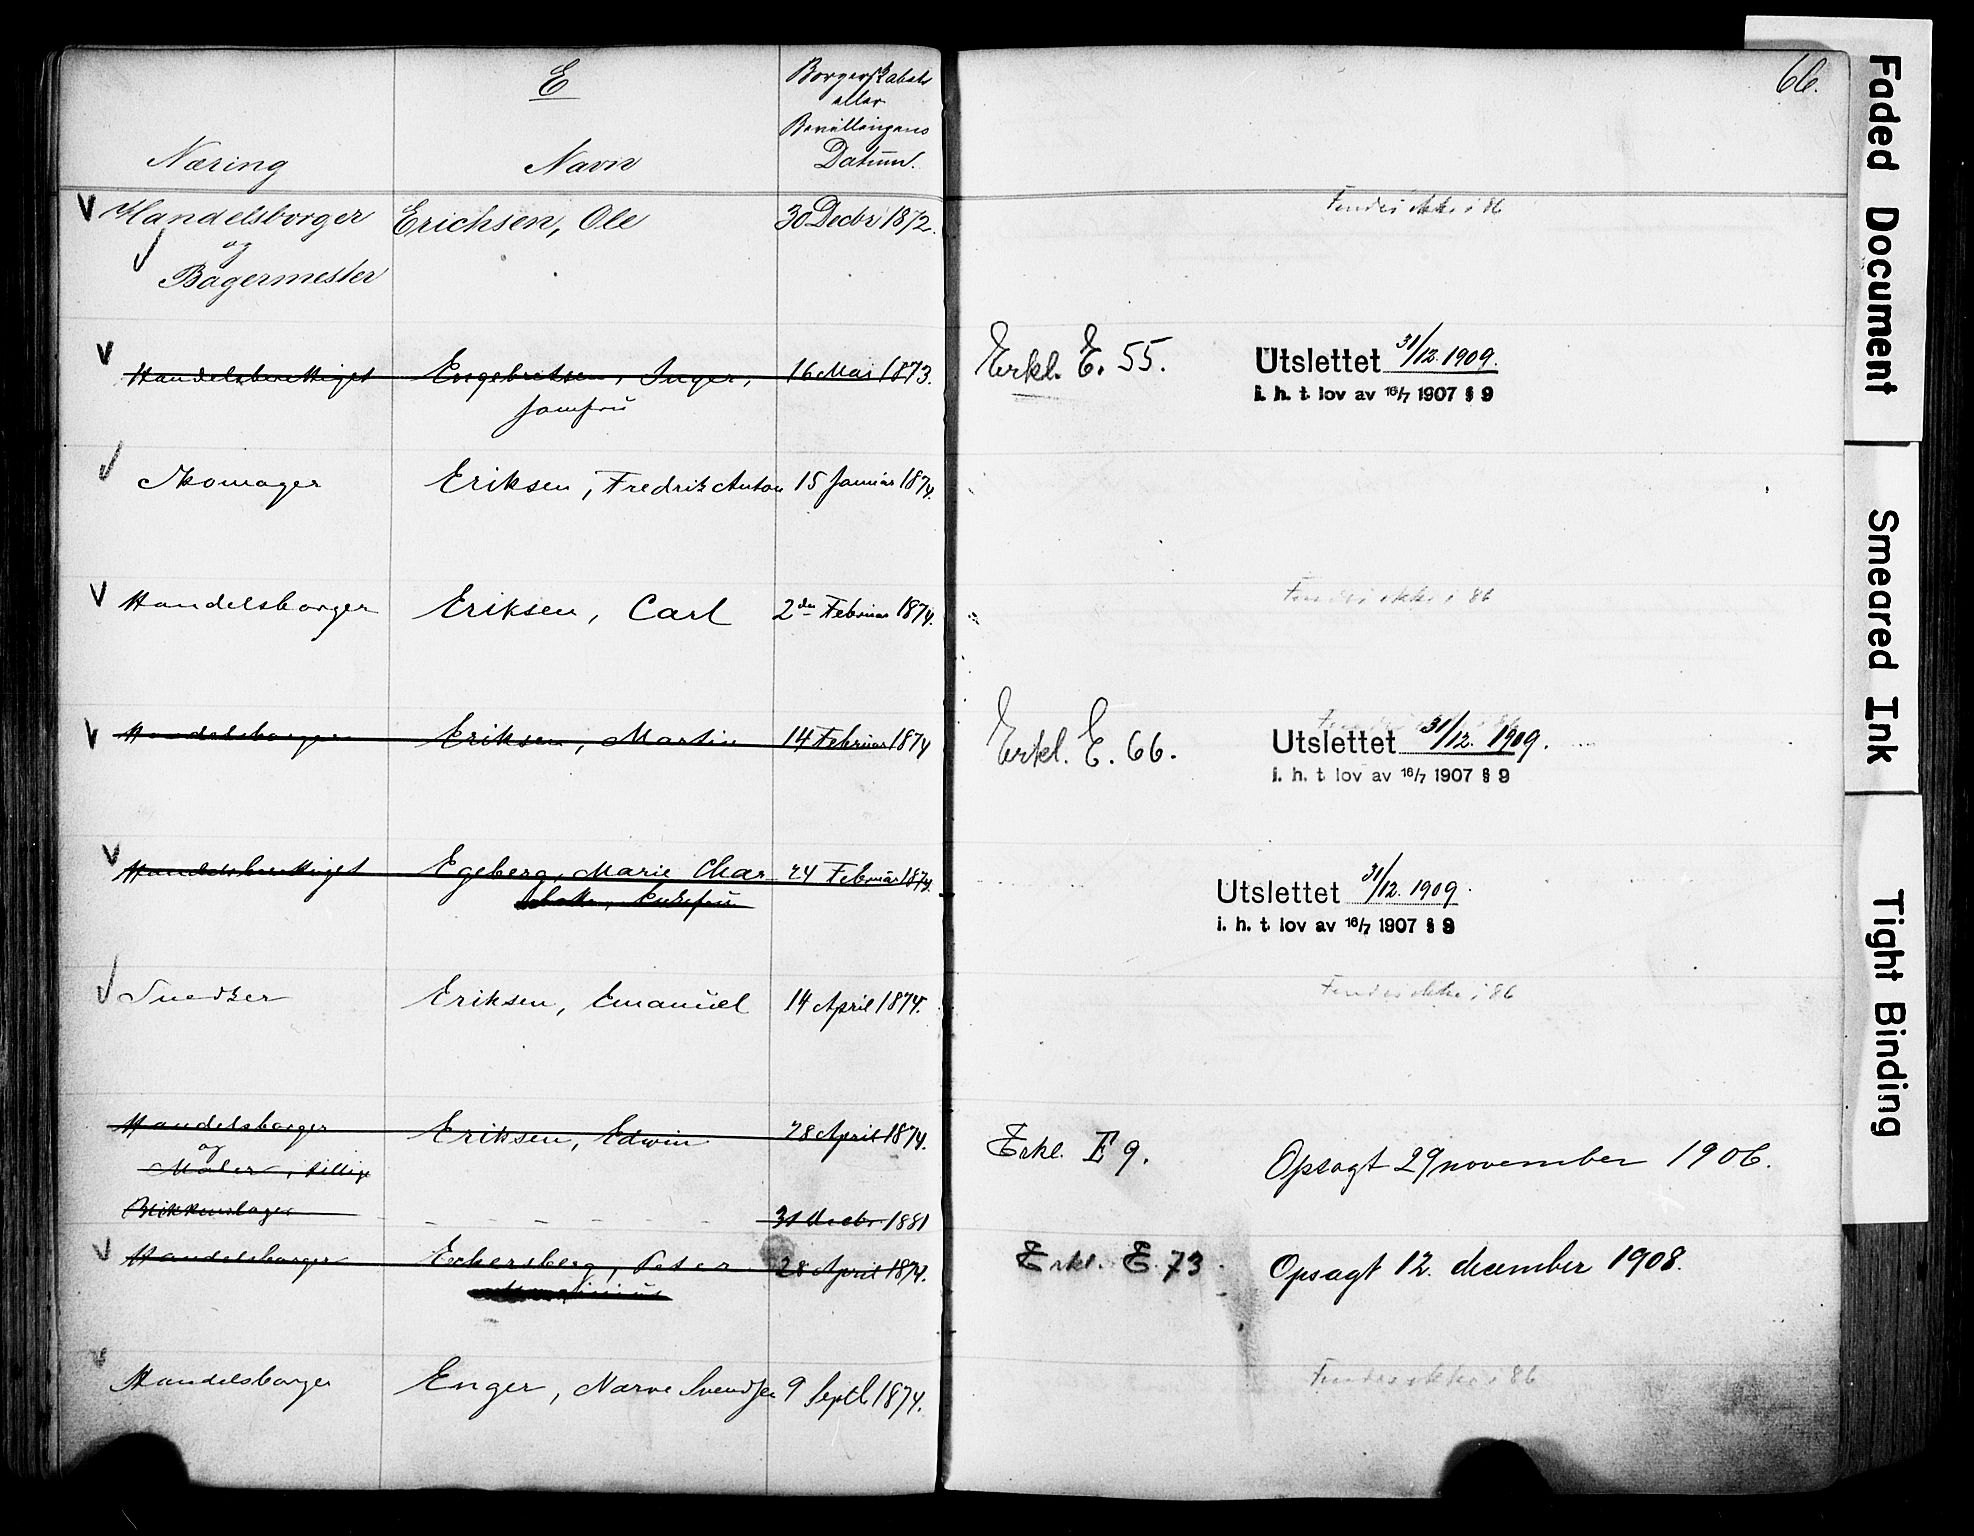 E
Borgerskabets
eller
Bevillingens
Datum.
66.
Næring
Navn
V Handelsborger Erichsen, Ole 30 Decbr 1872.
Findes ikke i 86
og
Bagermester
V Handelsberettiget Engebritsen, Inger, 16 Mai 1873.
Jomfru
Erkl. E. 55.
Utslettet 31/12. 1909.
i. h. t. lov av 16/7 1907 § 9
Skomager Eriksen, Fredrik Anton 15 Januar 1874.
V Handelsborger Eriksen, Carl 2den Februar 1874.
Findes ikke i 86
V Handelsborger Eriksen, Martin 14 Februar 1874
Erkl. E. 66.
Utslettet 31/12. 1909.
i. h. t. lov av 16/7 1907 § 9
V Handelsberettiget Egeberg, Marie Char 24 Februar 1874.
lotte,
Utslettet 31/12. 1909.
i. h. t. lov av 16/7 1907 § 9
Snedker Eriksen, Emanuel 14 April 1874.
Findes ikke i 86
Handelsborger Eriksen, Edwin 28 April 1874.
og
Maler, tillige
Erkl. E 9.
Opsagt 29 november 1906.
Blikkenslager - - - - - - 31 Decbr 1881
V Handelsborger Eckersberg, Peter 28 April 1874.
Erkl. E. 73.
Opsagt 12. december 1908.
V Handelsborger Enger, Narve Svendsen 9 Septb 1874.
Findes ikke i 86
Faded Document
Smeared Ink
Tight Binding